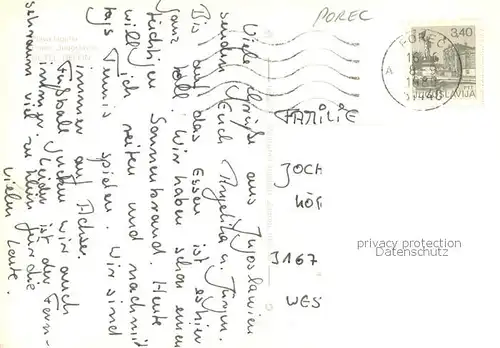 POREC
3,40
JUGOSLAVIJA
POREČ
A
51440
Viele Grüße aus Jugoslawien
senden Euch Angelika u. Jürgen.
Bis auf das Essen ist es hier
ganz toll. Wir haben schon einen
tüchtigen Sonnenbrand. Heute
will ich reiten und nachmit
tags Tennis spielen. Wir sind
immer auf Achse.
Fußball gucken wir auch
immer. Leider ist der Fern-
sehraum viel zu klein für die
vielen Leute.
FAMILIE
JOCH
HÖF
3167
WES
privacy protection
Datenschutz